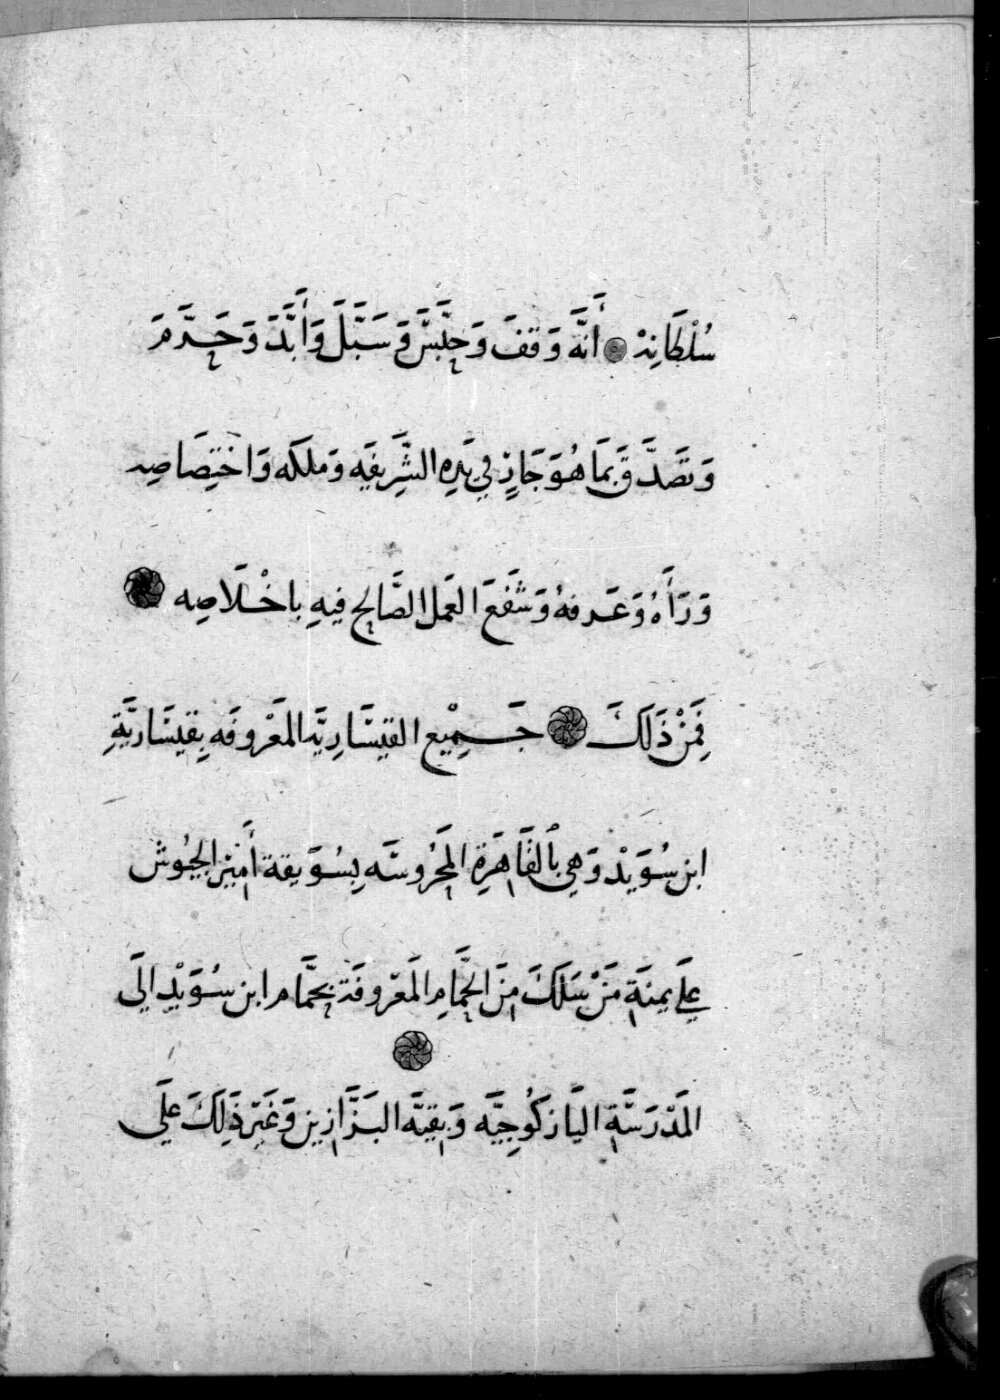 سُلْطَانِهْ أَنَّهَ وَقفَ وَحَبَّسَ وَسَبَّلَ وَأَبَّدَ وَحَرَّمَ
وَتصَدَّقَ بمَا هُوَ جَارٍ في يَدِهِ الشَّرِيفَه وَملكَه وَاختِصَاصِه
وَرَأَهُ وَعَرفهُ وَشَفَعَ العَملَ الصَّالح فيهِ باخْلَاصِه
فَمَنْ ذَلَكَ جَمِيْع القيسَارِيَّه المَعْروفَه بِقيسَاريَّةِ
ابن سُوَيْد وَهي بالقَاهَرِة المحَرُوسَه بِسُوَيقة أَمَيْر الجيُوش
علَى يمنَة مَنْ سَلَكَ مِنَ الحَّمامِ المَعْروفَة بحمَّام ابن سُوَيْدِ الَى
المَدْرَسَة اليَازكُوجِيَّه وَبقيَّه البَزَّازين وَغَيْر ذَلِكَ علَى